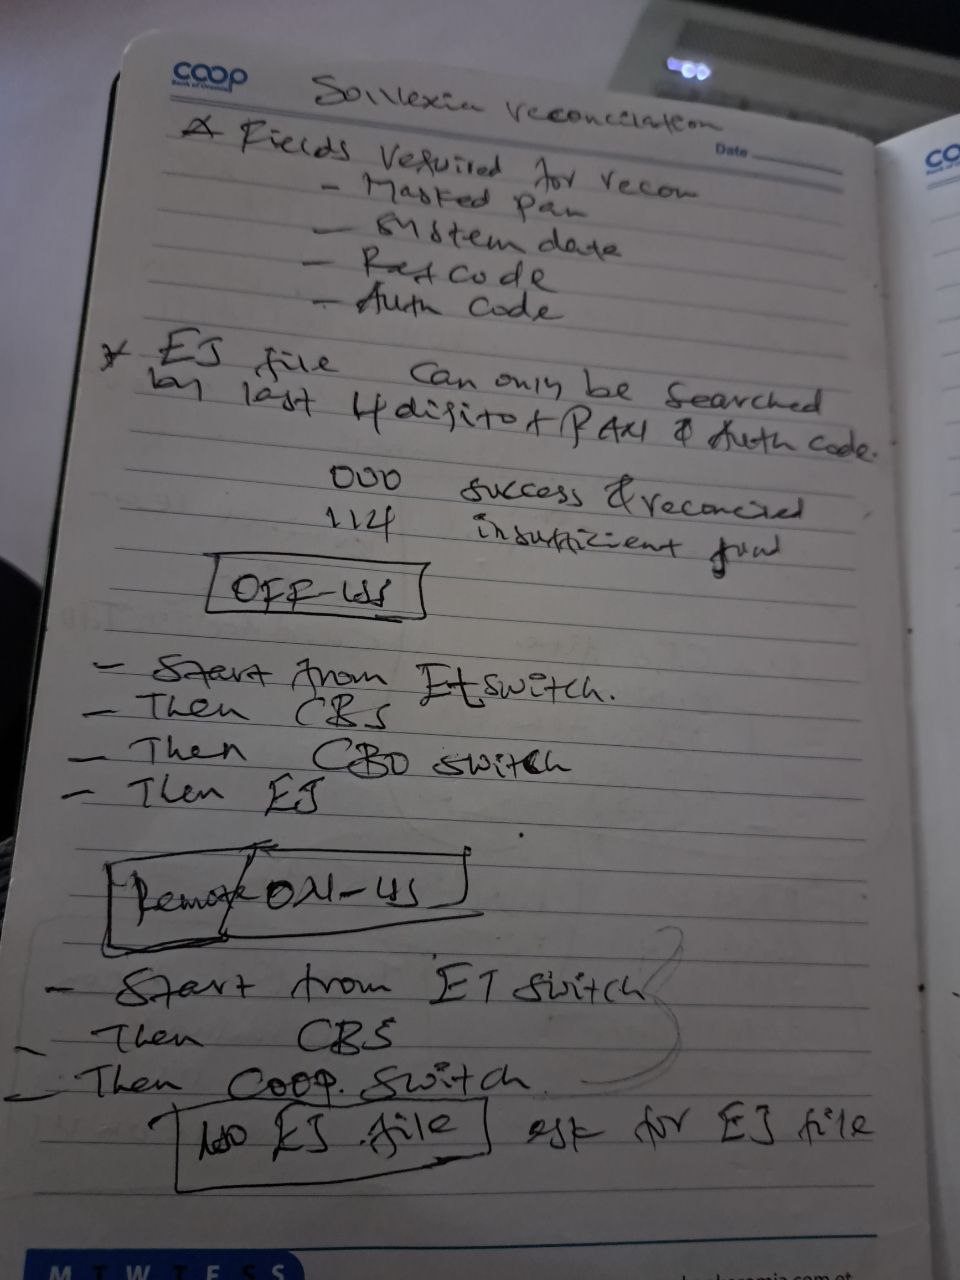 coop
Bank of Oromia
reconcilation
Date
Fields required for recon
- Masked pan
- System date
- Ret code
- Auth code
* EJ file can only be searched
by last 4 digit of PAN & Auth code.
000 success & reconciled
114 insufficient fund
OFF-US
- Start from Etswitch.
- Then CBS
- Then CBO switch
- Then EJ
Remote ON-US
- Start from ET switch
- Then CBS
- Then Coop. Switch
No EJ file ask for EJ file
CO
M T W T F S S